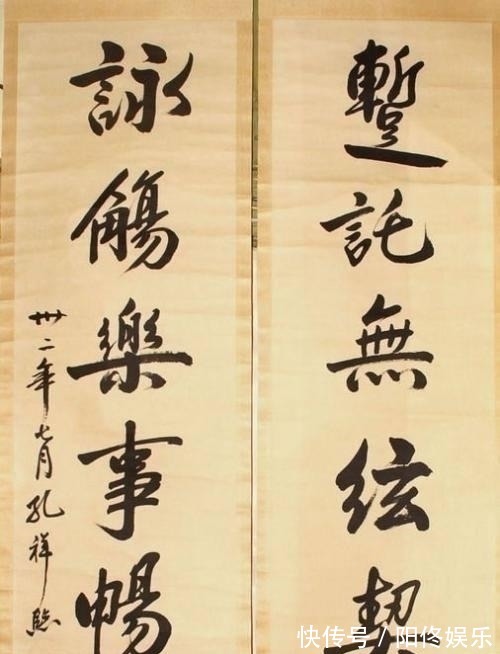 蹔託無絃
詠觴樂事暢
卅二年七月孔祥熙
快传号/阳佟娱乐